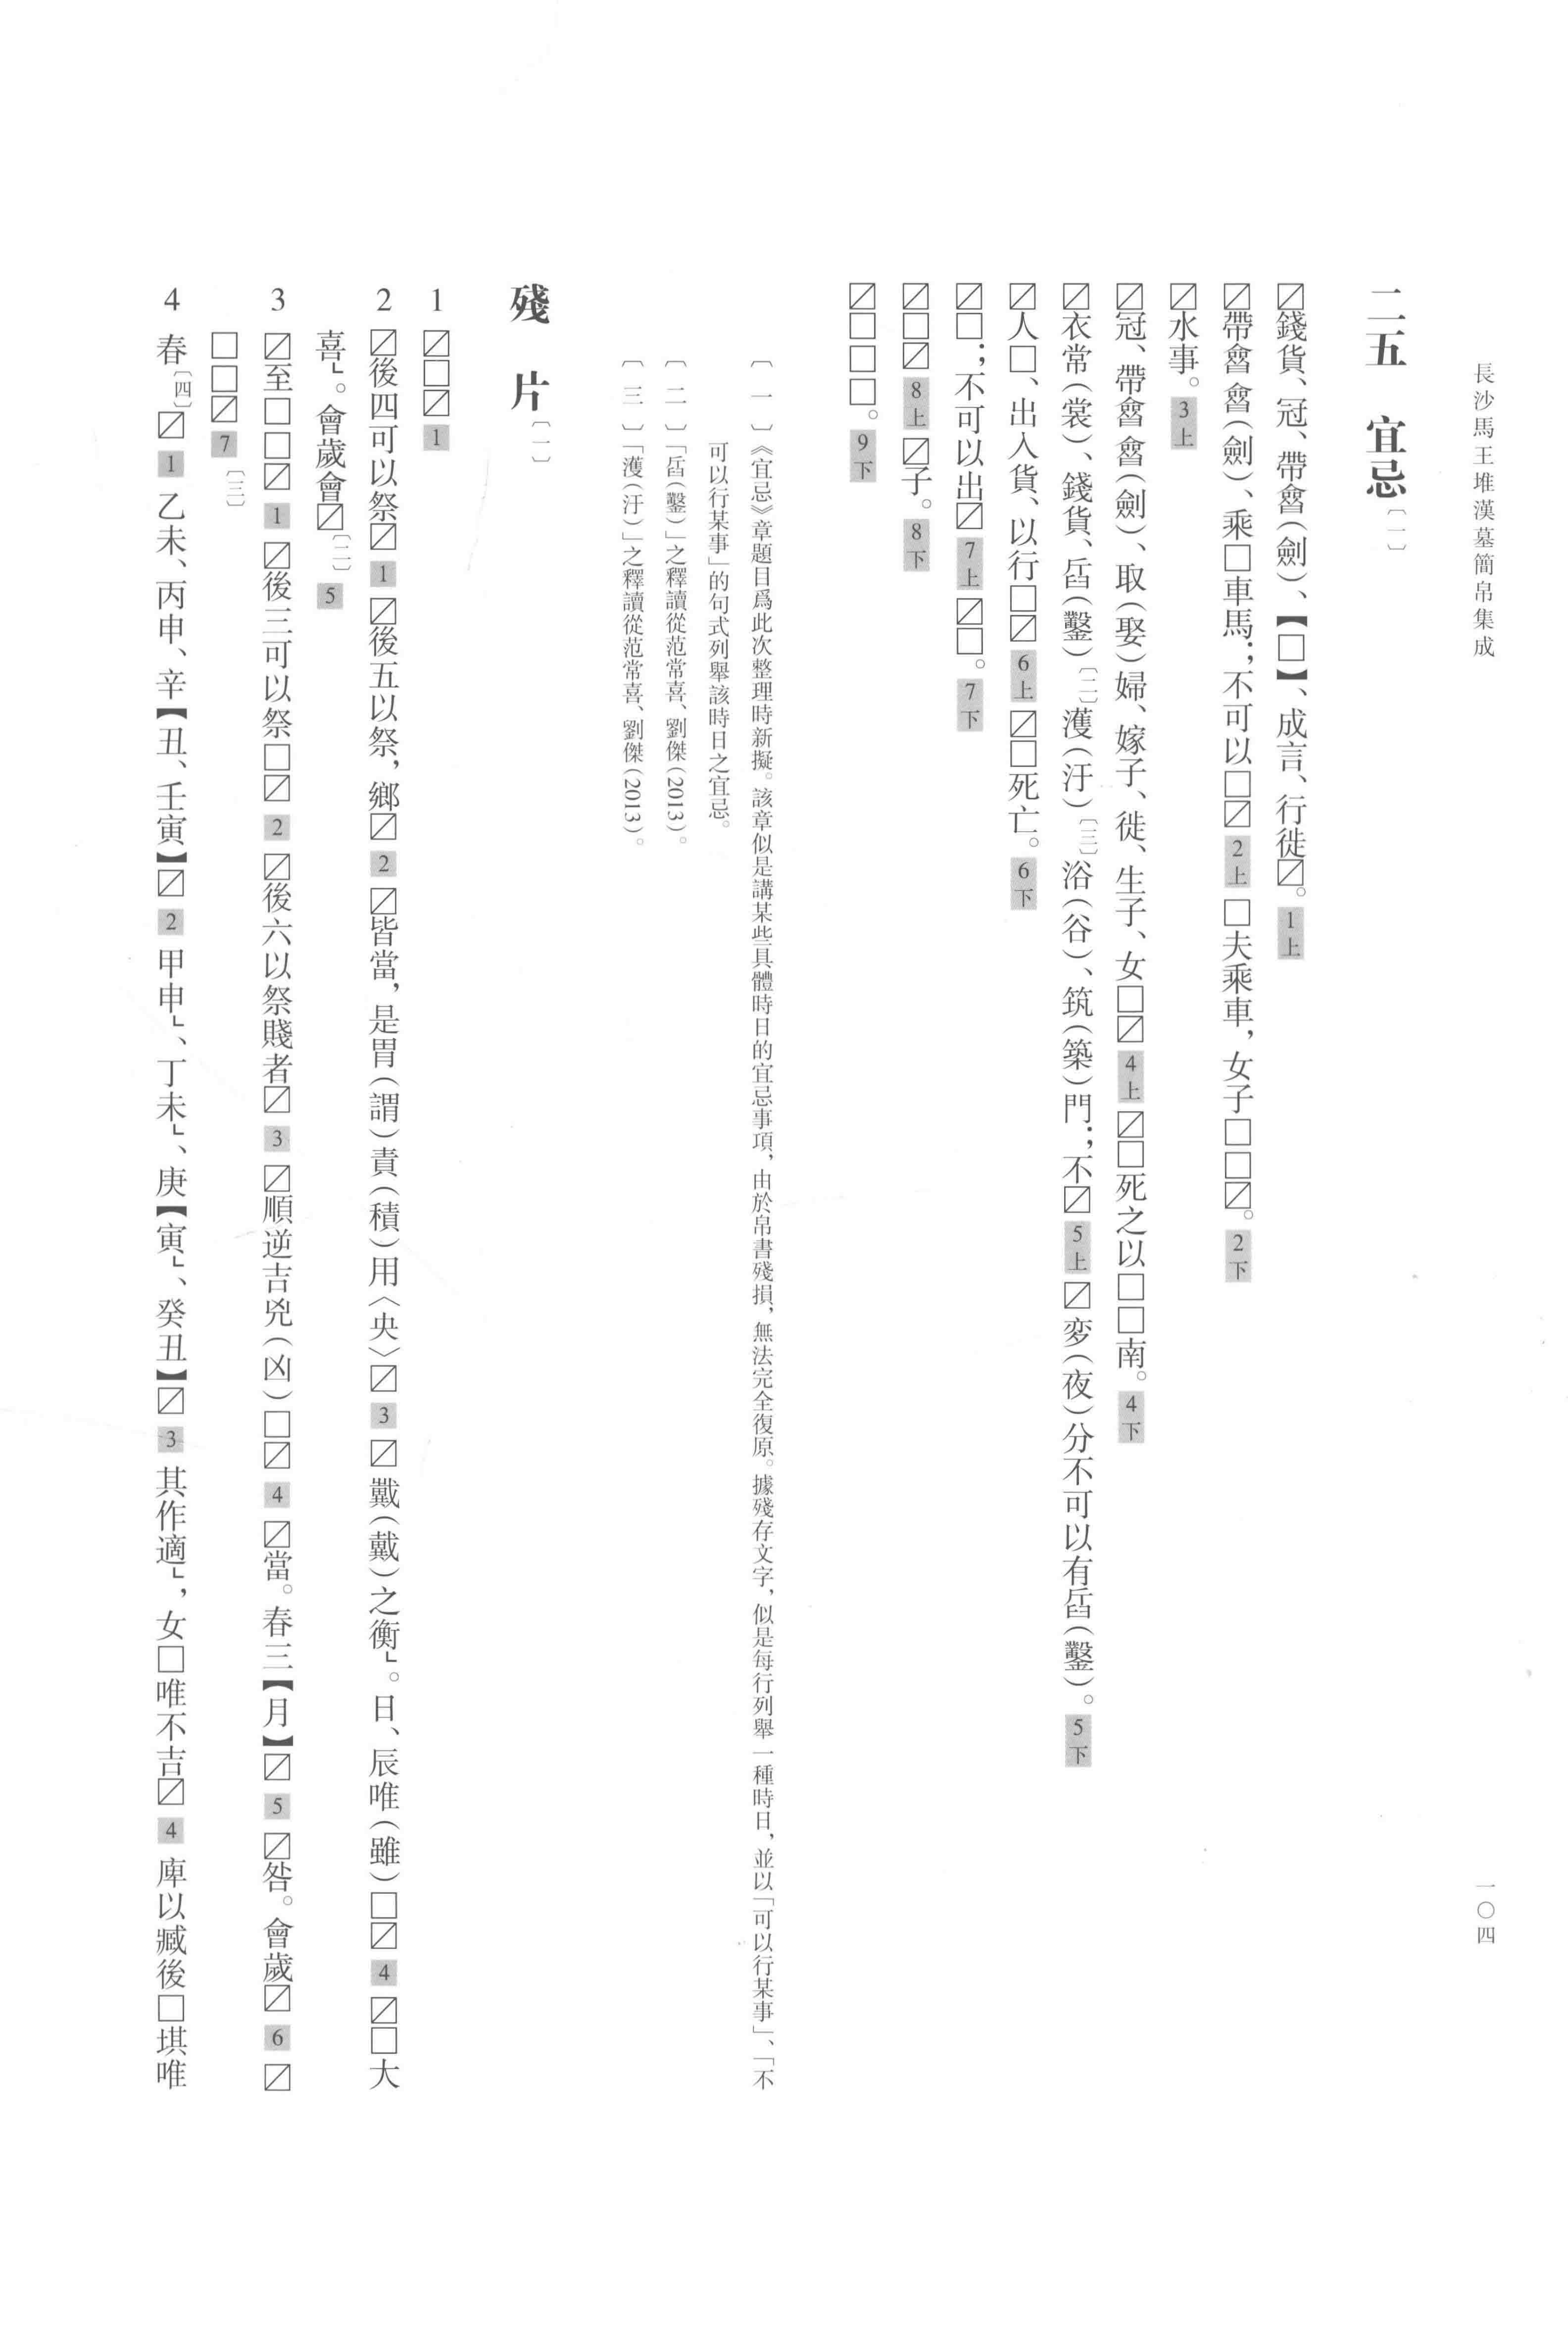 長沙馬王堆漢墓簡帛集成
一〇四
二五　宜忌〔一〕
☑錢貨、冠、帶鐱(劍)、【□】、成言、行徙☑。1上
☑帶鐱(劍)、乘□車馬；不可以□☑ 2上 □夫乘車，女子□□☑。2下
☑水事。3上
☑冠、帶鐱(劍)、取(娶)婦、嫁子、徙、生子、女□☑ 4上 ☑□死之以□□南。4下
☑衣常(裳)、錢貨、𠂤(鑿)〔二〕濩(汙)〔三〕浴(谷)、筑(築)門；不☑ 5上 ☑夜(夜)分不可以有(鑿)。5下
☑人□、出入貨、以行□☑ 6上 ☑□死亡。6下
☑□；不可以出☑ 7上 ☑□。7下
☑□☑ 8上 ☑子。8下
☑□□□。9下
〔一〕《宜忌》章題目爲此次整理時新擬。該章似是講某些具體時日的宜忌事項，由於帛書殘損，無法完全復原。據殘存文字，似是每行列舉一種時日，並以「可以行某事」、「不
可以行某事」的句式列舉該時日之宜忌。
〔二〕「(鑿)」之釋讀從范常喜、劉傑(2013)。
〔三〕「濩(汙)」之釋讀從范常喜、劉傑(2013)。
殘　片〔一〕
1 ☑□☑ 1
2 ☑後四可以祭☑ 1 ☑後五以祭，鄉☑ 2 ☑皆當，是胃(謂)責(積)用〈央〉☑ 3 ☑戴(戴)之衡└。日、辰唯(雖)□☑ 4 ☑□大
喜└。會歲會☑〔二〕 5
3 ☑至□□☑ 1 ☑後三可以祭□☑ 2 ☑後六以祭賤者☑ 3 ☑順逆吉兇(凶)□☑ 4 ☑當。春三【月】☑ 5 ☑咎。會歲☑ 6 ☑
□□☑ 7〔三〕
4 春〔四〕☑ 1 乙未、丙申、辛【丑、壬寅】☑ 2 甲申└、丁未└、庚【寅└、癸丑】☑ 3 其作適└，女□唯不吉☑ 4 庳以臧後□㙋唯